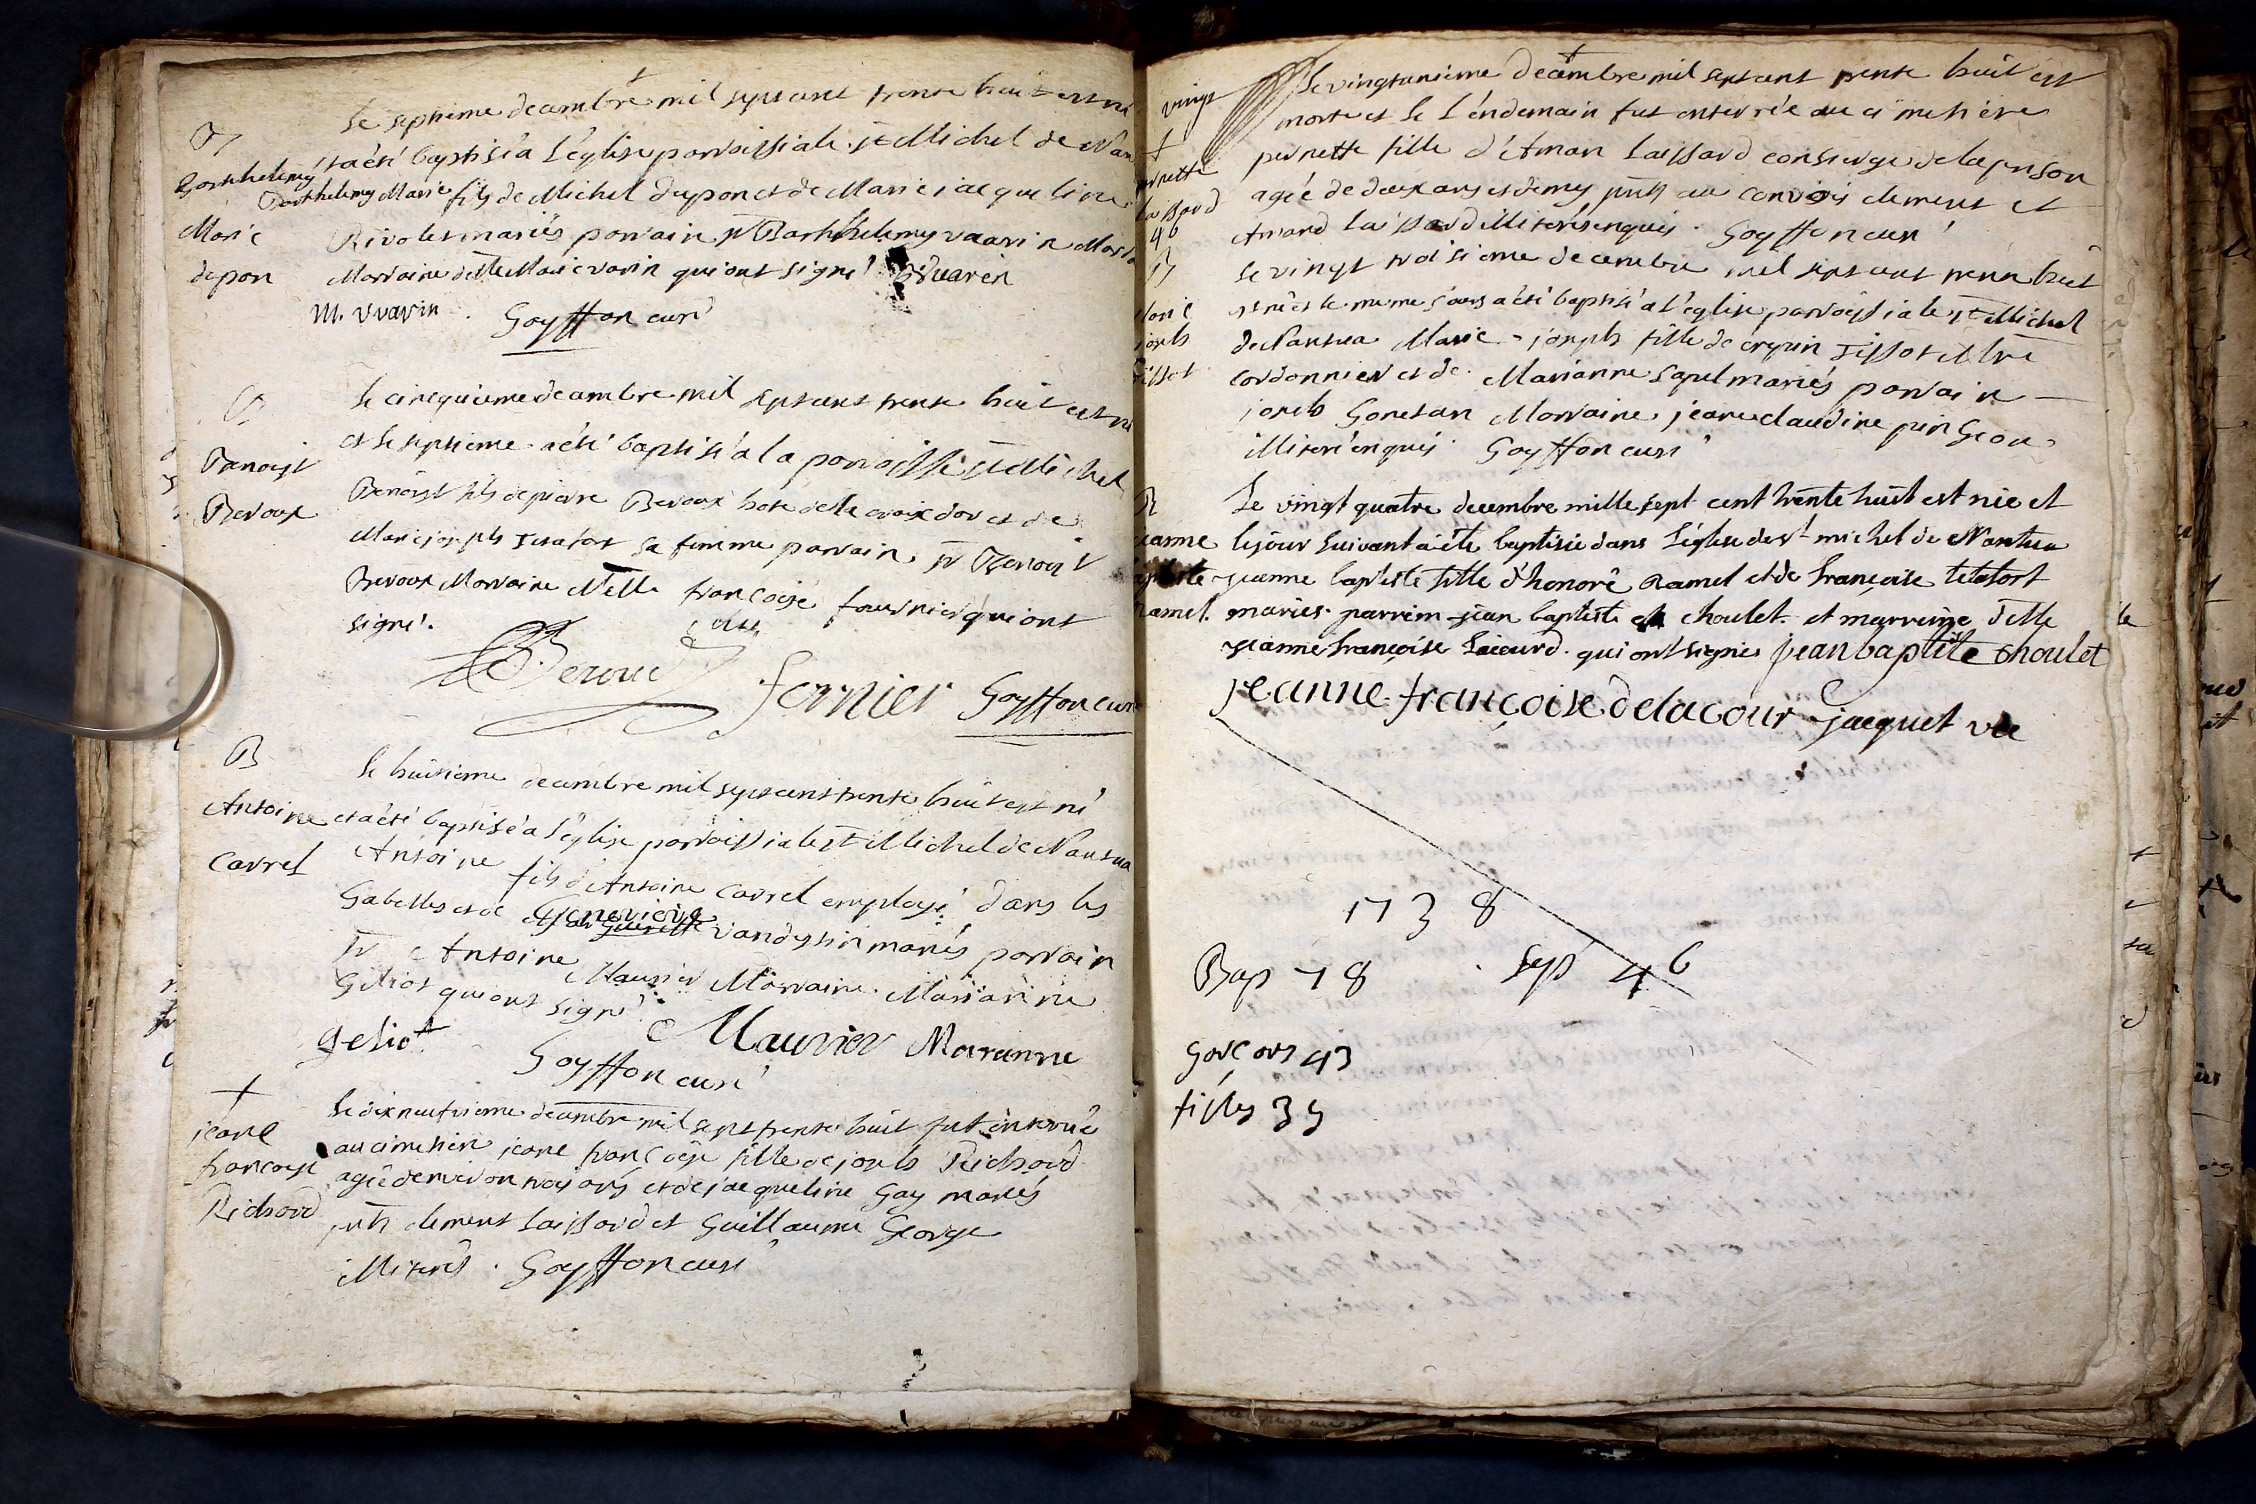 B
Barthelemy
Marie
dupon
Le septieme decembre mil sept cent trente huit est né
et a été baptisé a l'eglise parroissiale st Michel de Nan
Barthelemy Marie fils de Michel dupon et de Marie jacqueline
Rivolet mariés parrain sr Barthelemy vuarin
Marraine delle Marie varin qui ont signé B vuarin
M. vuarin . Goyffon curé
B
Benoist
Beroux
Le cinquieme decembre mil sept cent trente huit est né
et le septieme a été baptisé a la parroisse st Michel
Benoist fils de pierre Beroux hote de la croix d'or et de
Marie joseph tetafort sa femme parrain sr Benoist
Beroux Marraine Delle françoise fournier qui ont
signé.
B. Beroud
fernier Goyffon curé
B
Antoine
Carrel
Le huitieme decembre mil sept cent trente huit est né
et a été baptisé a l'eglise parroissiale st Michel de Nantua
Antoine fils d'Antoine Carrel employé dans les
Gabelles et de Genevieve vandessin mariés parrain
sr Antoine Maurier Marraine Marianne
Geliot qui ont signé
geliot Maurier Marianne
Goyffon curé
+
jeane
francoise
Richard
Le dix neufvieme decembre mil sept trente huit fut enterrée
au cimetiere jeane francoise fille de joseph Richard
agée d'environ trois ans et de jacqueline Gay mariés
pnts clement Laissard et Guillaume George
illiterés . Goyffon curé
vingt
+
pernette
Laissard
46
Le vingtunieme decembre mil sept cent trente huit est
morte et le l'endemain fut enterrée au cimetiere
pernette fille d'Aman Laissard consierge de la prison
agée de deux ans et demy pnts au convois clement et
Amand Laissard illiterés enquis . Goyffon curé
B
Marie
joseph
tissot
Le vingt troisieme decembre mil sept cent trente huit
est née et le meme jour a été baptisé a l'eglise parroissiale st Michel
de Nantua Marie - joseph fille de crepin Tissot Mtre
cordonnier et de Marianne Sapel mariés parrain
joseph Gonetan Marraine jeane claudine pingeon
illiteré enquis Goyffon curé
B
jeanne
baptiste
Ramel.
Le vingt quatre decembre mille sept cent trente huit est née et
le jour suivant a été baptisée dans l'église de st michel de Nantua
jeanne baptiste fille d'honoré Ramel et de françoise tetafort
mariés. parrein jean baptiste choulet. et marreine delle
jeanne françoise Lacourd. qui ont signés Jean baptiste Choulet
jeanne françoise delacour jacquet vic
1738
Bap 78 . Sep 46
Garcons 43
filles 35